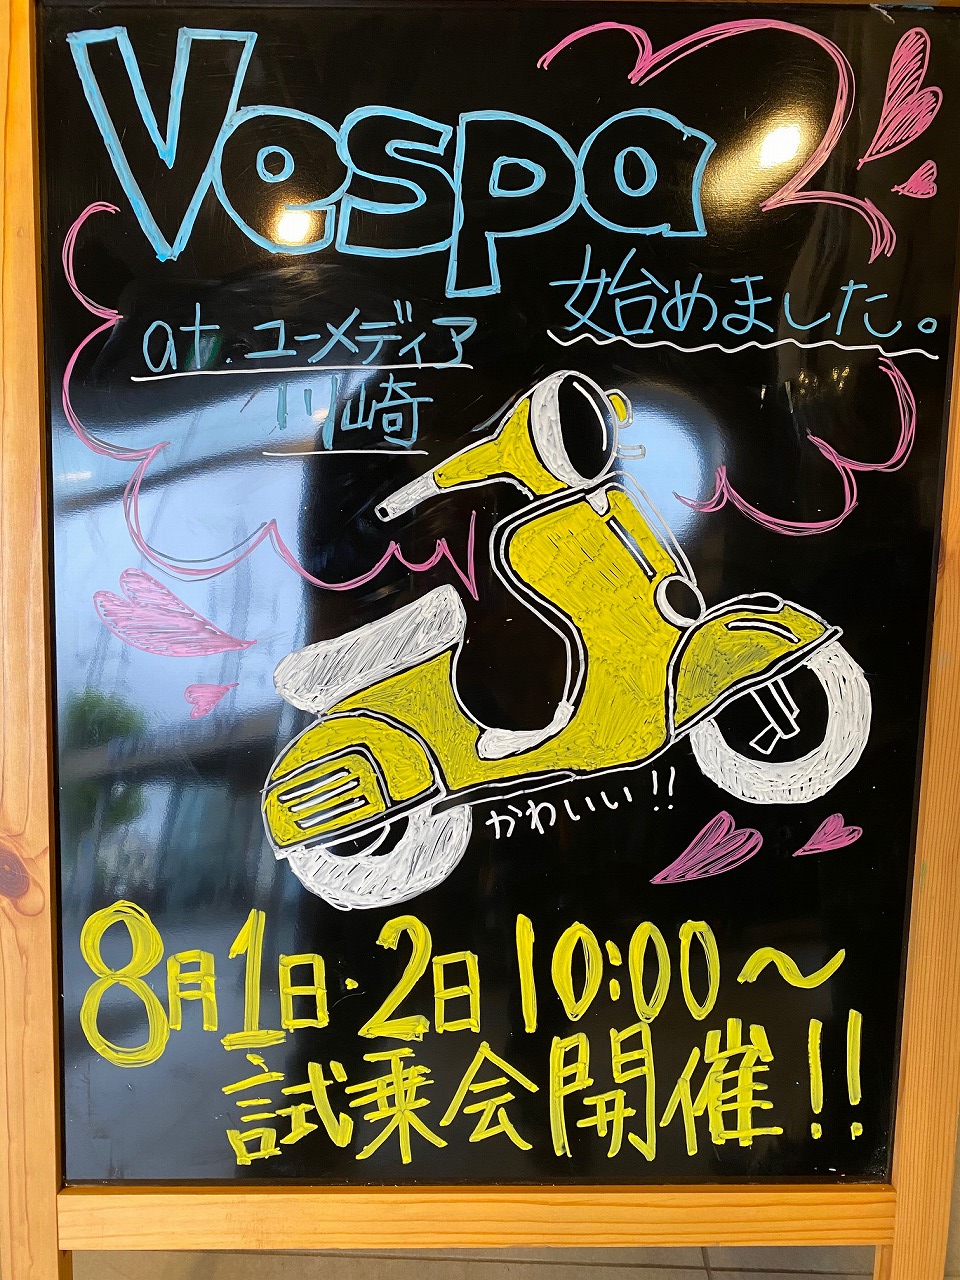 Vespa
始めました。
at.ユーメディア
川崎
かわいい!!
8月1日・2日10:00〜
試乗会開催!!